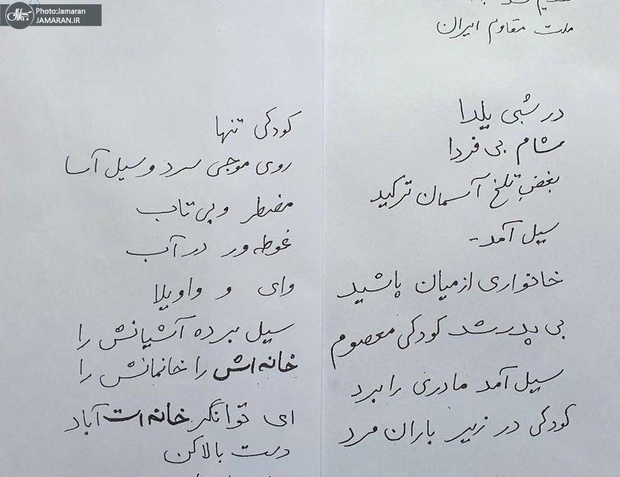 Photo:Jamaran
JAMARAN.IR
ملت مقاوم ایران
در شبی یلدا
شام بی فردا
بغض تلخ آسمان ترکید
سیل آمد-
خانواری از میان پاشید
بی پدر شد کودکی معصوم
سیل آمد مادری را برد
کودکی در زیر باران مرد
کودکی تنها
روی موجی سرد و سیل آسا
مضطر و بی تاب
غوطه ور در آب
وای و واویلا
سیل برده آشیانش را
خانه اش را خانمانش را
ای توانگر خانه ات آباد
دست بالا کن